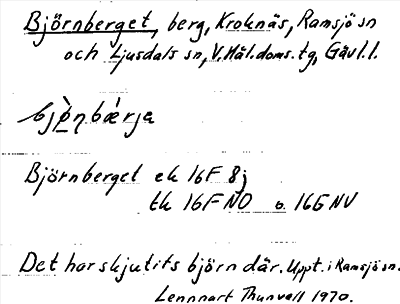 Björnberget, berg, Kroknäs, Ramsjö sn
och Ljusdals sn, V. Häl. doms. tg, Gävl. l.
Björnberget ek 16F 8j
tk 16F NO o. 16G NV
Det har skjutits björn där. Uppt. i Ramsjö sn.
Lennart Thunvall 1970.